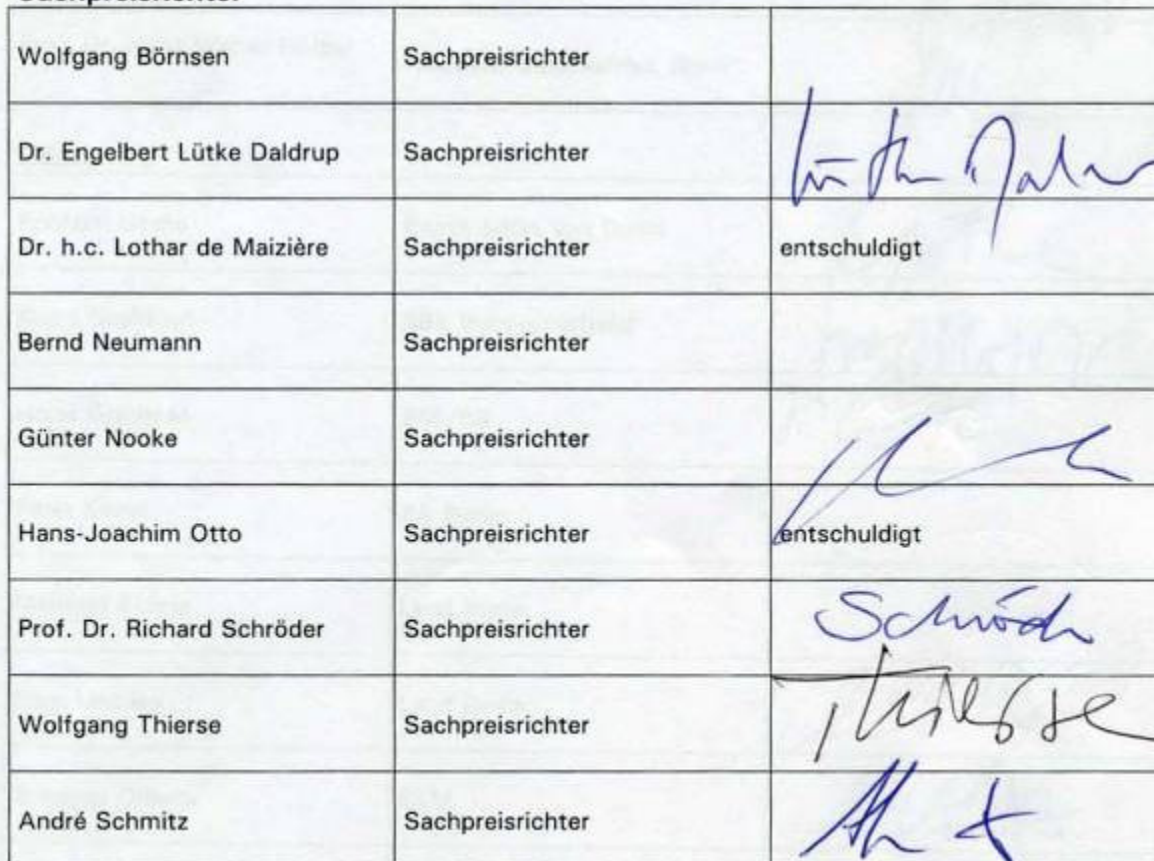 Sachpreisrichter
Wolfgang Börnsen Sachpreisrichter
Dr. Engelbert Lütke Daldrup Sachpreisrichter
Dr. h.c. Lothar de Maizière Sachpreisrichter entschuldigt
Bernd Neumann Sachpreisrichter
Günter Nooke Sachpreisrichter
Hans-Joachim Otto Sachpreisrichter entschuldigt
Prof. Dr. Richard Schröder Sachpreisrichter
Wolfgang Thierse Sachpreisrichter Thierse
André Schmitz Sachpreisrichter